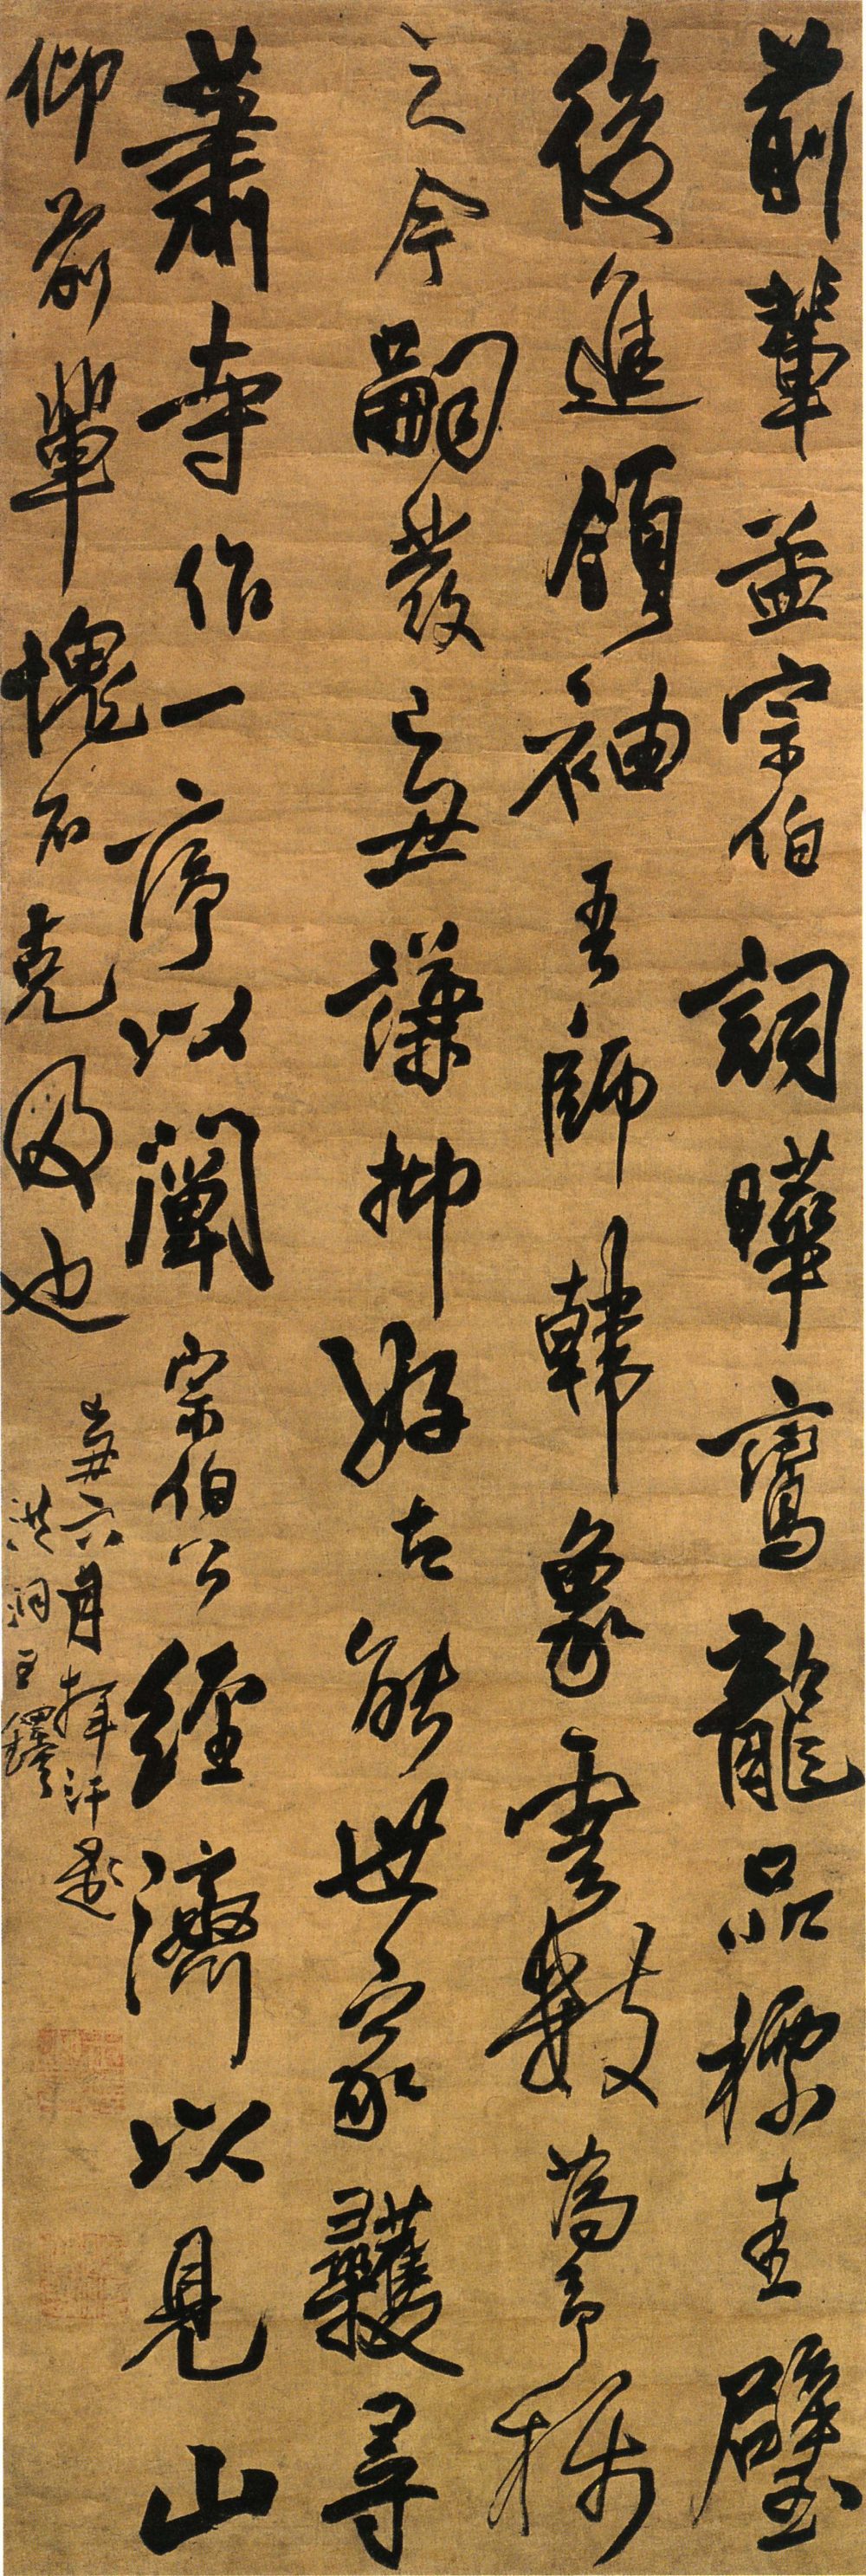 前輩孟宗伯詞曄鸞龍品標圭璧
後進領袖吾師韓象雲數為予稱
之今嗣發己丑謙抑好古能世家䕶尋
蕭寺作一序以闡宗伯公經濟以見山
仰前輩愧不克及也
己丑六月揮汗題
洪洞王鐸